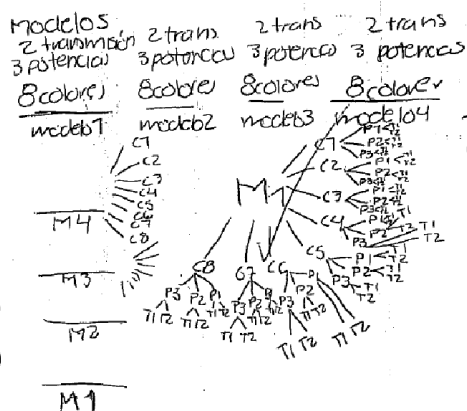 modelos
2 transmisión 2 trans 2 trans 2 trans
3 potencias 3 potencias 3 potencias 3 potencias
8 colores 8 colores 8 colores 8 colores
modelo1 modelo2 modelo3 modelo4
C1
C2
C3
C4
C5
C6
C7
C8
M4
M3
M2
M1
M1
C1 P1 T1 T2
P2 T1 T2
P3 T1 T2
C2 P1 T1 T2
P2 T1 T2
P3 T1 T2
C3 P1 T1 T2
P2 T1 T2
P3 T1 T2
C4 P1 T1 T2
P2 T1 T2
P3 T1 T2
C5 P1 T1 T2
P2 T1 T2
P3 T1 T2
C8 C7 C6
P3 P2 P1 P3 P2 P1 P3 P2 P1
T1 T2 T1 T2 T1 T2 T1 T2
T1 T2 T1 T2